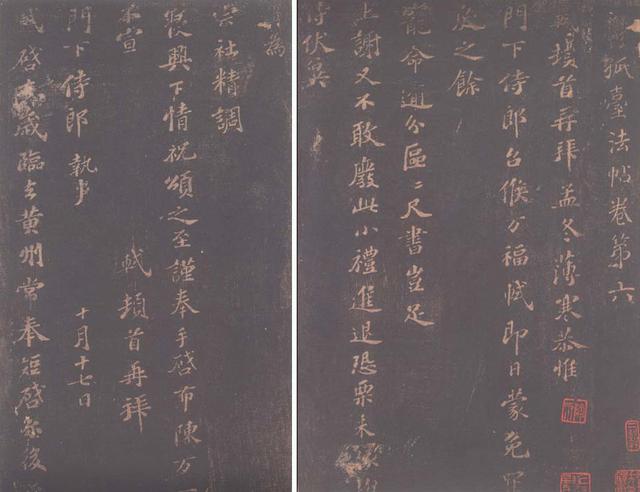 姑孰臺法帖卷第六
軾頓首再拜孟冬薄寒恭惟
門下侍郎台候万福軾即日蒙免罪
戾之餘
寵命逾分區區尺書豈足
上謝又不敢廢此小禮進退恐栗未
時伏冀
為
宗社精調
寢興下情祝頌之至謹奉手啓布陳万一
不宣
軾頓首再拜
門下侍郎 執事
十月十七日
軾啓去歲臨去黄州常奉短啓尔後